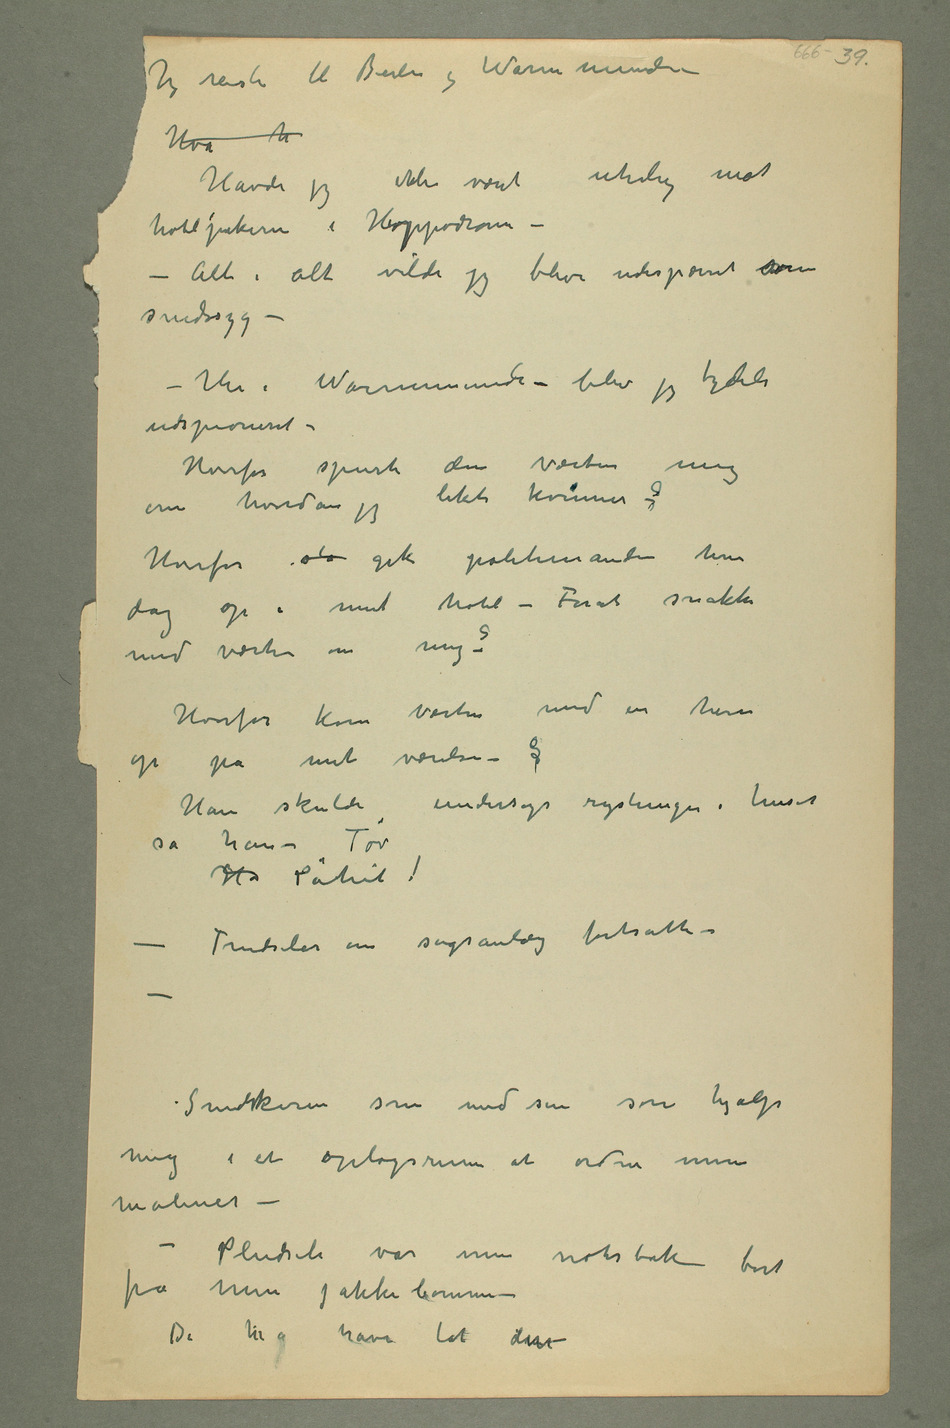 666-39.
Jeg reiste til Berlin og Warnemünde –
Hva h
Havde jeg ikke været uheldig mot
hotelpikerne i Hoppodrom –
– Alt i alt vilde jeg blive udspioneret som
sindssyg –
– Her i Warnemünde – blev jeg tydelig
udspioneret –
Hvorfor spurte den værten mig
om hvordan jeg likte kvinner?
Hvorfor sto gik politimanden hver
dag op i mit hotel – Forat snakke
med værten om mig?
Hvorfor kom værten med en herre
op på mit værelse – ?
Han skulde undersøge rystninger i huset
sa han –
Ha Påhit!
– Trudseler om søgsanlæg fortsatte –
–
Snedkeren som med sin søn hjalp
mig i et oplagsrum at ordne mine
malerier –
– Pludseli var min notisbok bort
fra min jakkelomme –
De må have tat den –